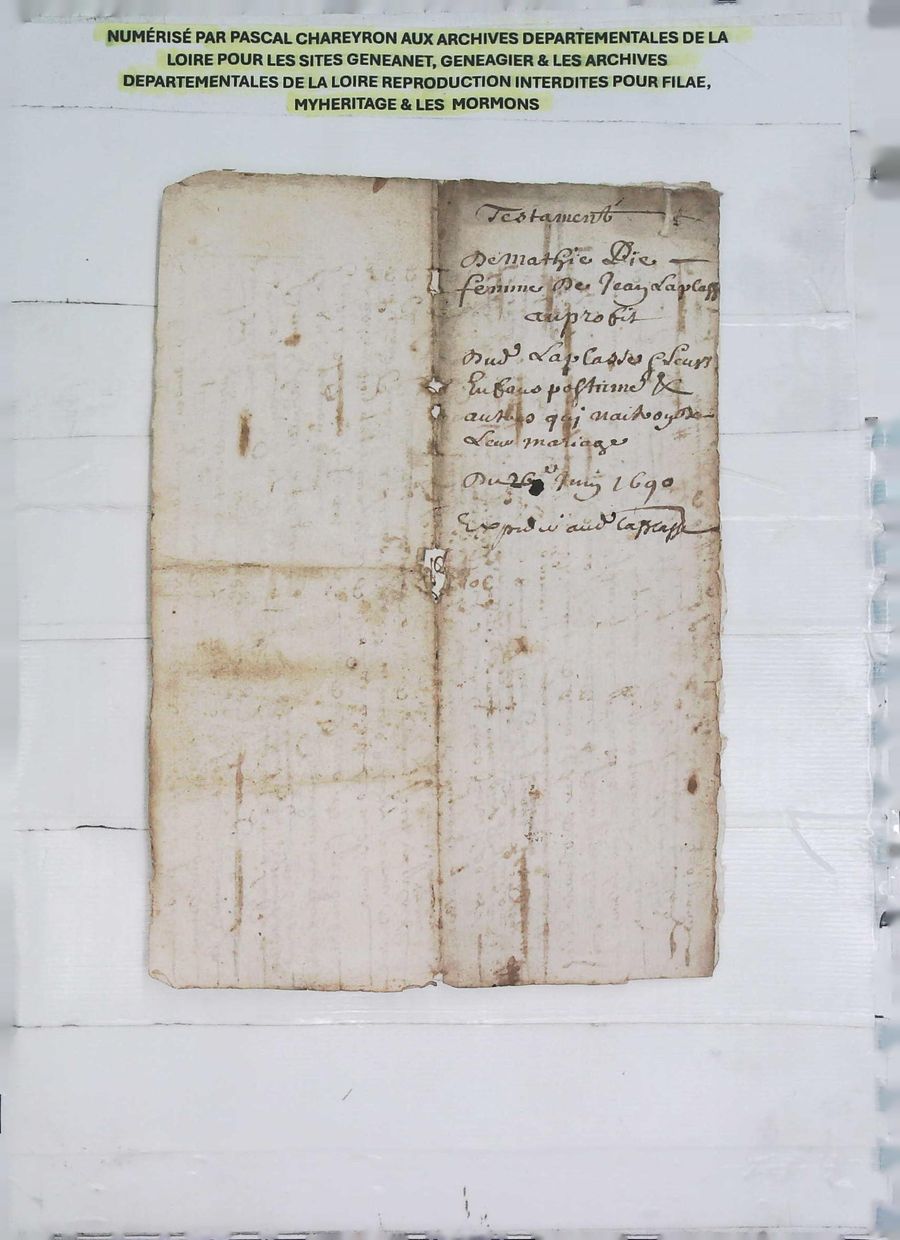 NUMÉRISÉ PAR PASCAL CHAREYRON AUX ARCHIVES DEPARTEMENTALES DE LA
LOIRE POUR LES SITES GENEANET, GENEAGIER & LES ARCHIVES
DEPARTEMENTALES DE LA LOIRE REPRODUCTION INTERDITES POUR FILAE,
MYHERITAGE & LES MORMONS
Testament
De mathie Pie
femme De Jean Laplasse
au profit
Dud Laplasse & Leurs
Enfans postume &
autres qui naitron De
Leur mariage
Du 26 Juin 1690
Expedié aud Laplasse